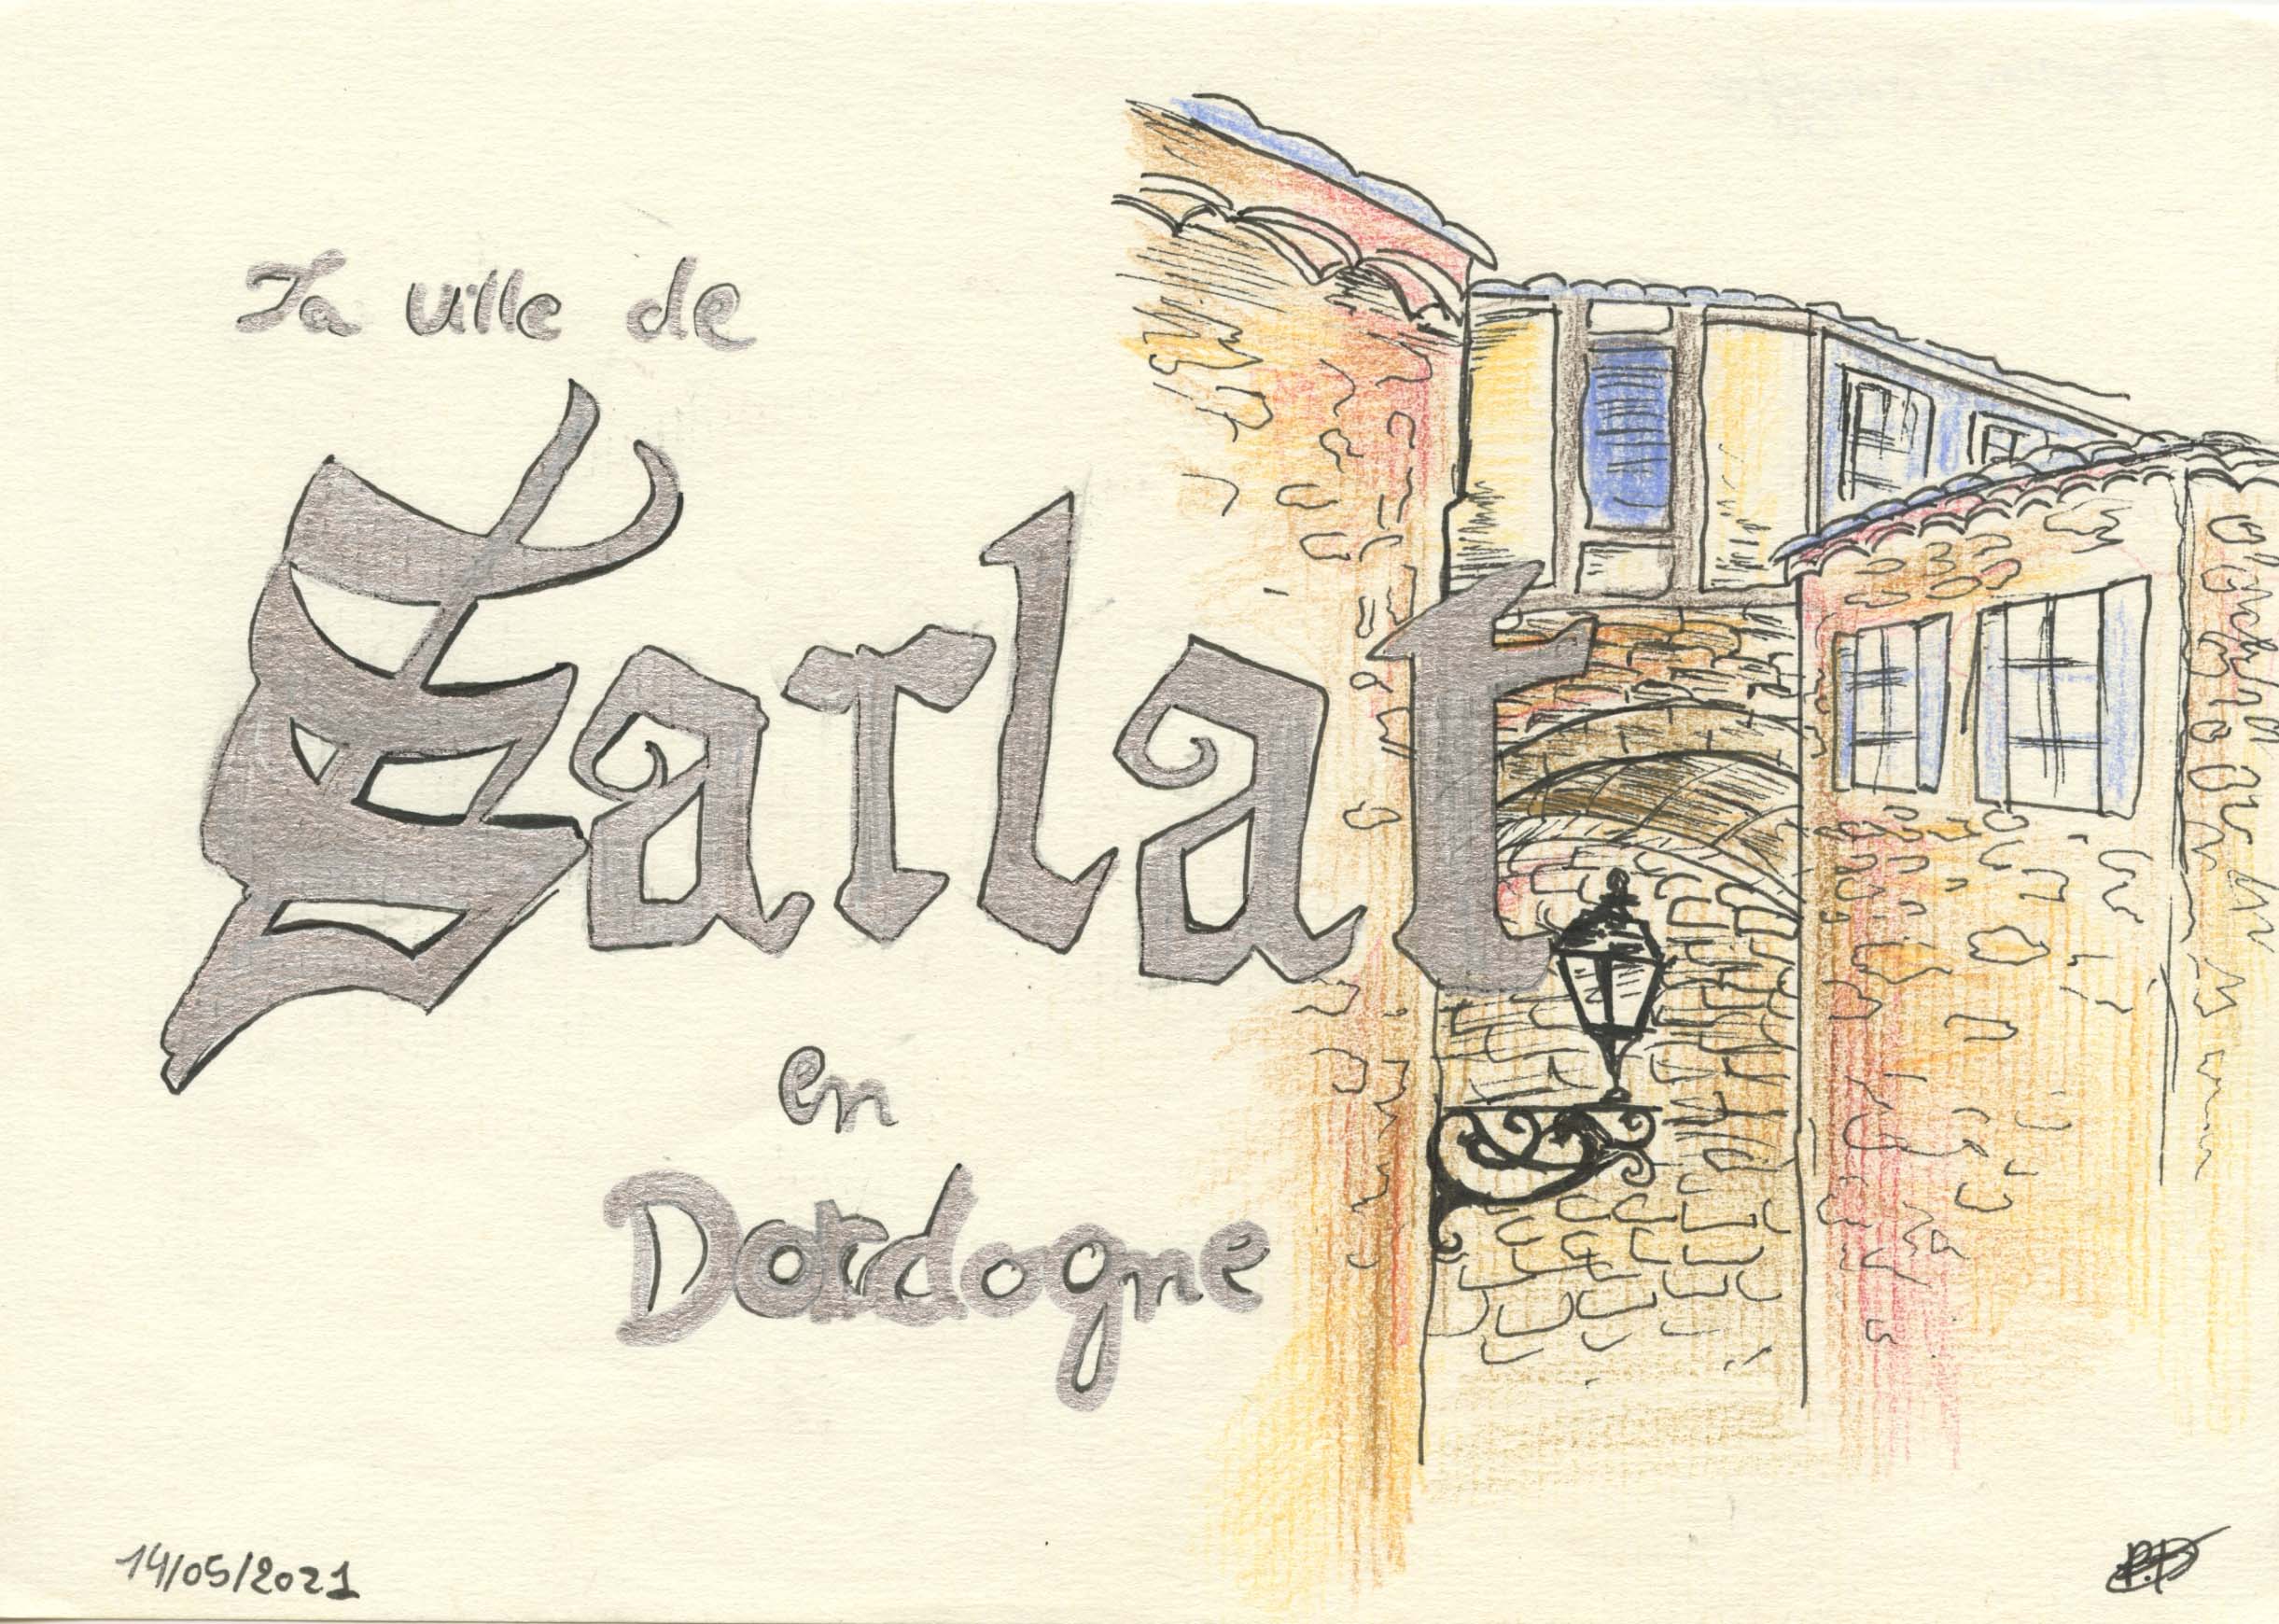 La ville de
Sarlat
en
Dordogne
14/05/2021